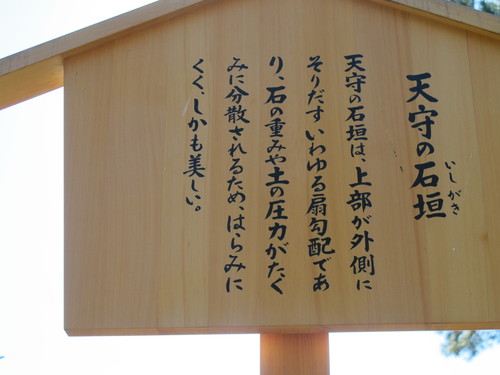 天守の石垣
いしがき
天守の石垣は、上部が外側に
そりだすいわゆる扇勾配であ
り、石の重みや土の圧力がたく
みに分散されるため、はらみに
くく、しかも美しい。